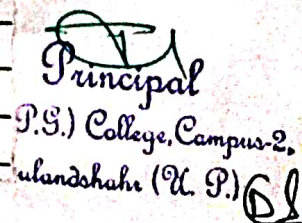 Principal
P.G.) College, Campus-2,
ulandshahr (U. P.)